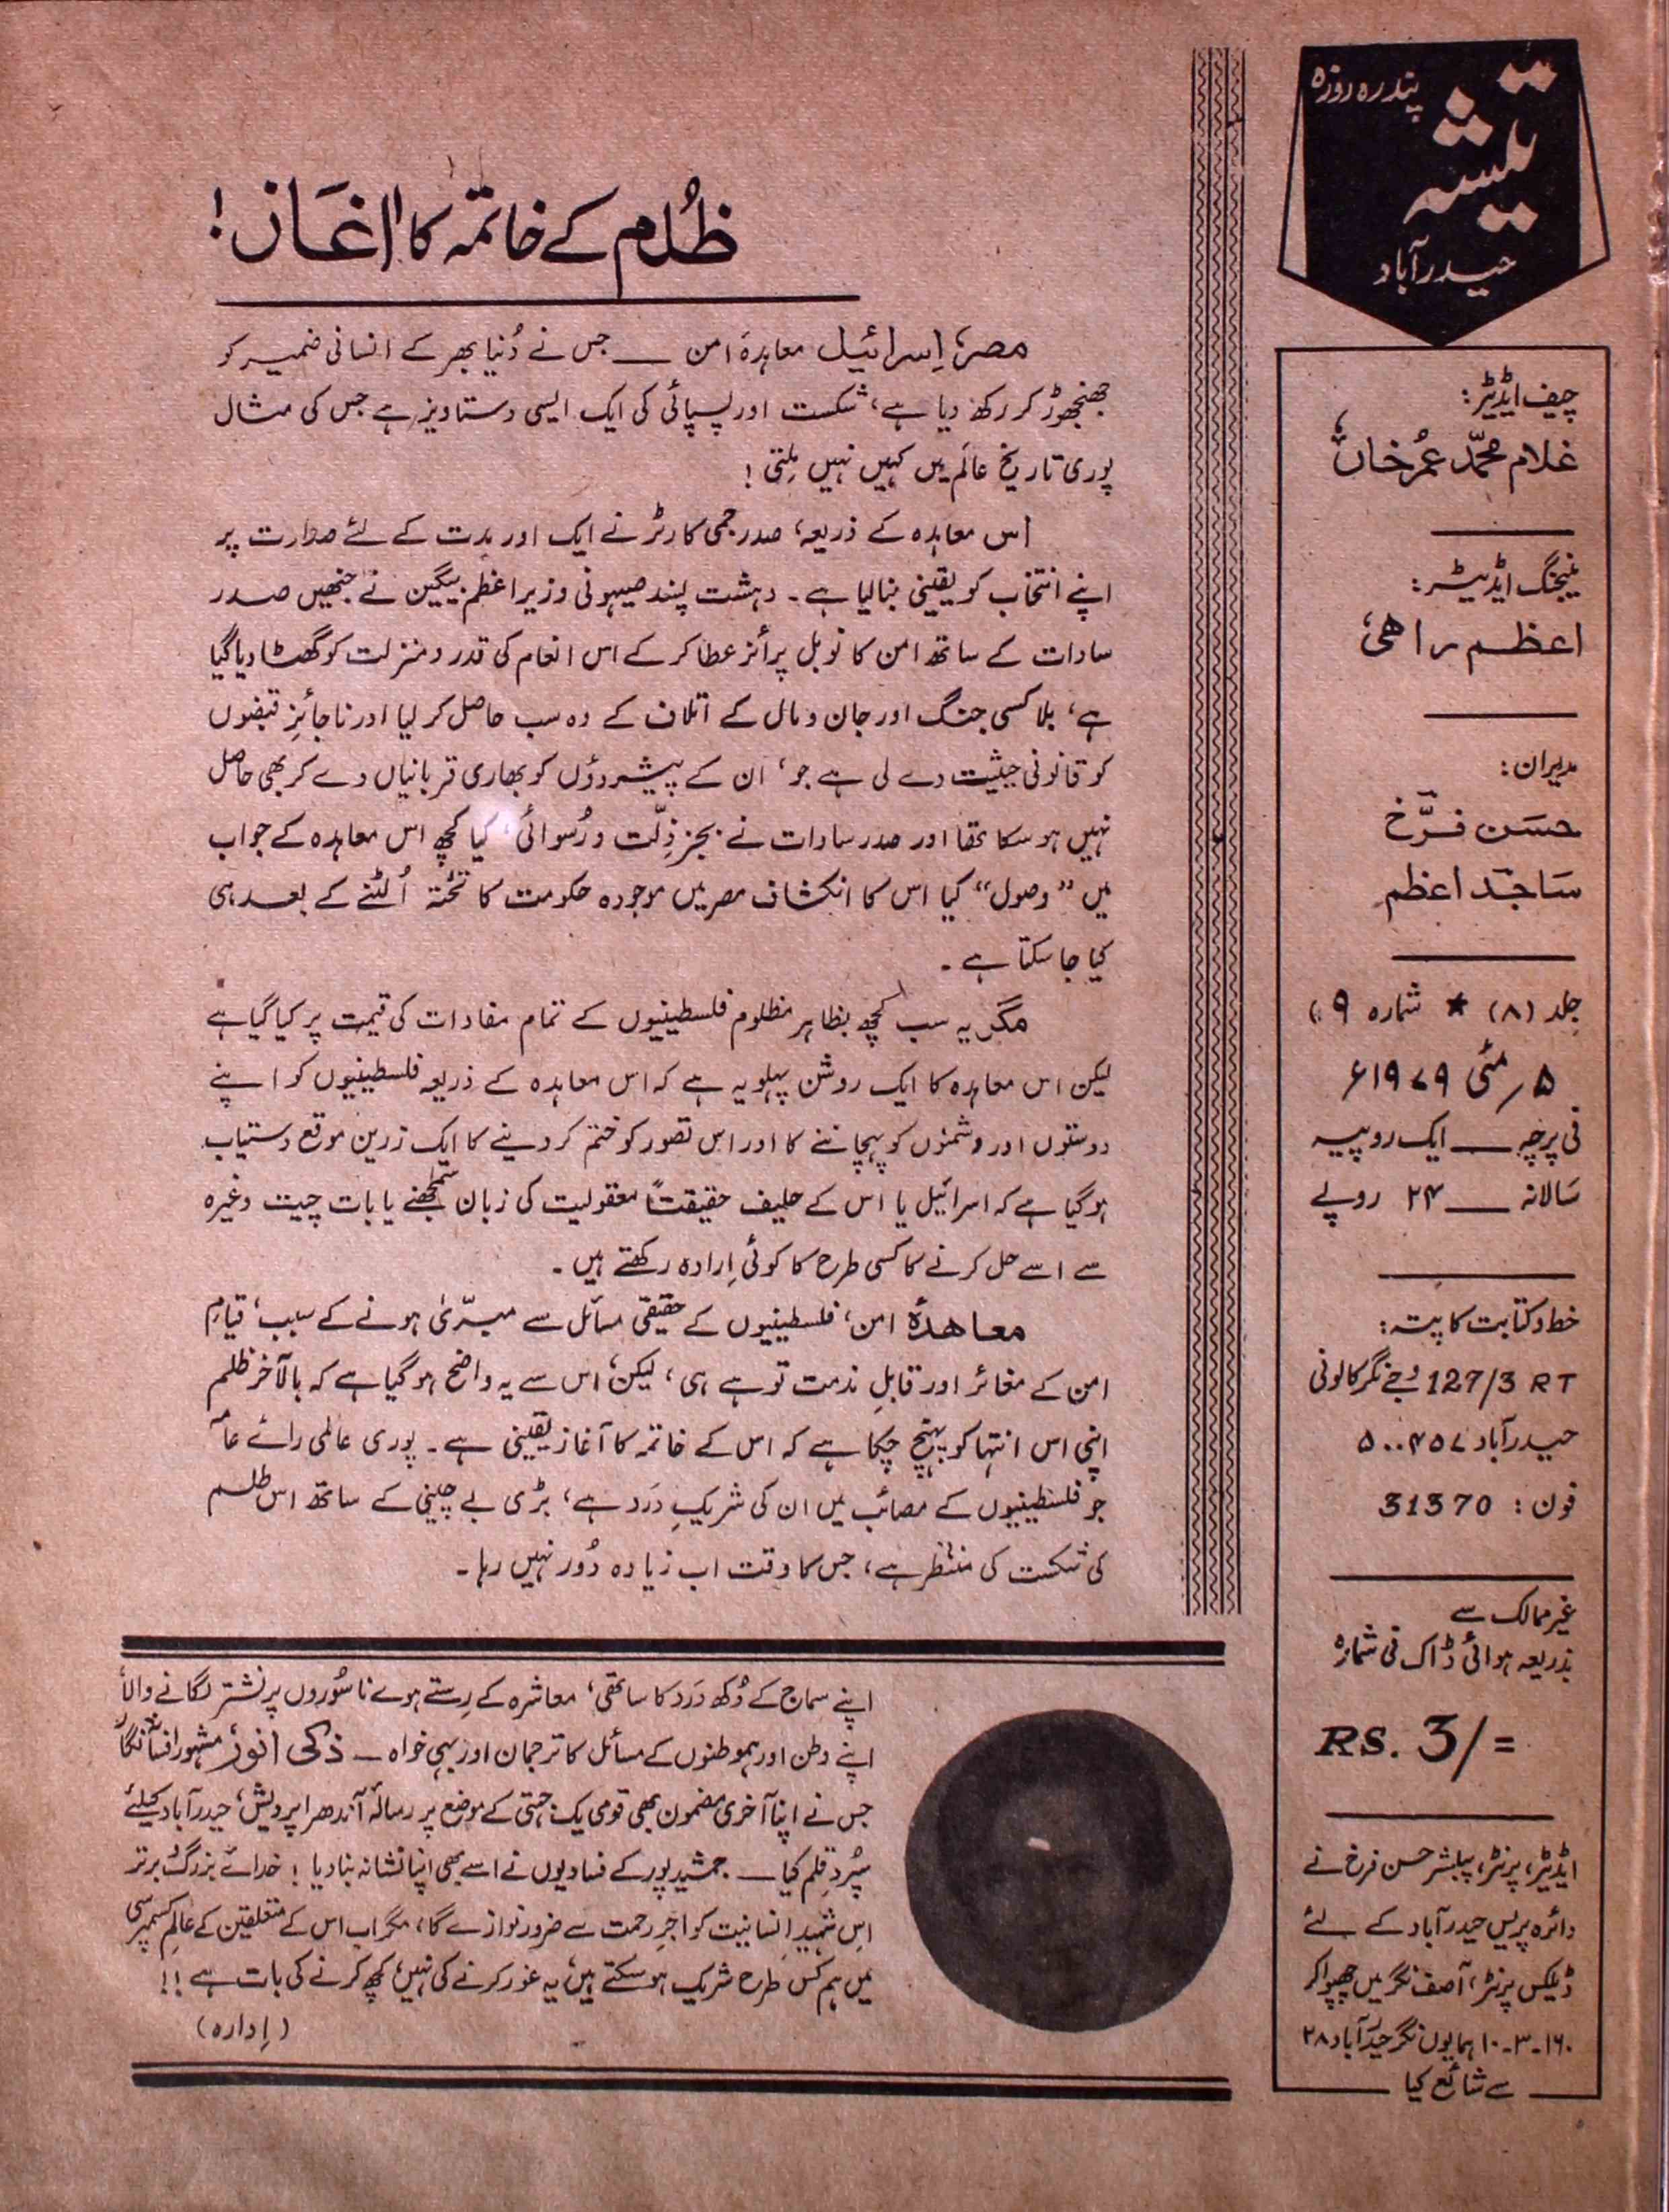 پندرہ روزہ
تیشہ
حیدرآباد
چیف ایڈیٹر:
غلام محمّد عمر خاں
منیجنگ ایڈیٹر:
اعظم راھی
مدیران:
حسَن فرّخ
سَاجد اعظم
جلد (۸) ★ شمارہ (۹)
۵/ مئی ۱۹۷۹ء
فی پرچہ ــــ ایک روپیہ
سَالانہ ــــ ۲۴ روپے
خط و کتابت کا پتہ:
127/3 RT وجے نگر کالونی
حیدرآباد ۵۰۰۴۵۷
فون: 31370
غیر ممالک سے
بذریعہ ہوائی ڈاک فی شمارہ
RS. 3/=
ایڈیٹر، پرنٹر، پبلشر حسن فرخ نے
دائرہ پریس حیدرآباد کے لئے
ڈیلکس پرنٹر، آصف نگر میں چھپوا کر
۱۶۰-۳-۱۰ ہمایوں نگر حیدرآباد ۲۸
سے شائع کیا
ظلُم کے خاتمہ کا آغَاز!
مصر، اِسرائیل معاہدۂ امن ــــ جس نے دُنیا بھر کے انسانی ضمیر کو
جھنجھوڑ کر رکھ دیا ہے، شکست اور پسپائی کی ایک ایسی دستاویز ہے جس کی مثال
پوری تاریخ عالَم میں کہیں نہیں مِلتی!
اُس معاہدہ کے ذریعہ، صدر جمی کارٹر نے ایک اور مدت کے لئے صدارت پر
اپنے انتخاب کو یقینی بنا لیا ہے۔ دہشت پسند صیہونی وزیراعظم بیگین نے جنھیں صدر
سادات کے ساتھ امن کا نوبل پرائز عطا کر کے اس انعام کی قدر و منزلت کو گھٹا دیا گیا
ہے، بلا کسی جنگ اور جان و مال کے اتلاف کے وہ سب حاصل کر لیا اور ناجائز قبضوں
کو قانونی حیثیت دے لی ہے جو، ان کے پیشرووٗں کو بھاری قربانیاں دے کر بھی حاصل
نہیں ہو سکا تھا اور صدر سادات نے بجز ذِلّت و رُسوائی، کیا کچھ اس معاہدہ کے جواب
میں ”وصول“ کیا اس کا انکشاف مصر میں موجودہ حکومت کا تختہ اُلٹنے کے بعد ہی
کیا جا سکتا ہے۔
مگر یہ سب کچھ بظاہر مظلوم فلسطینیوں کے تمام مفادات کی قیمت پر کیا گیا ہے
لیکن اس معاہدہ کا ایک روشن پہلو یہ ہے کہ اس معاہدہ کے ذریعہ فلسطینیوں کو اپنے
دوستوں اور دشمنوں کو پہچاننے کا اور اس تصور کو ختم کر دینے کا ایک زرین موقع دستیاب
ہو گیا ہے کہ اسرائیل یا اس کے حلیف حقیقتاً معقولیت کی زبان سمجھنے یا بات چیت وغیرہ
سے اسے حل کرنے کا کسی طرح کا کوئی اِرادہ رکھتے ہیں۔
معاھدۂ امن، فلسطینیوں کے حقیقی مسائل سے مبرّیٰ ہونے کے سبب، قیامِ
امن کے مغائر اور قابلِ مذمت تو ہے ہی، لیکن، اس سے یہ واضح ہو گیا ہے کہ بالآخر ظلم
اپنی اس انتہا کو پہنچ چکا ہے کہ اس کے خاتمہ کا آغاز یقینی ہے۔ پوری عالمی رائے عامہ
جو فلسطینیوں کے مصائب میں ان کی شریکِ دَرد ہے، بڑی بے چینی کے ساتھ اس ظلم
کی شکست کی منتظر ہے، جس کا وقت اب زیادہ دُور نہیں رہا۔
اپنے سماج کے دُکھ دَرد کا ساتھی، معاشرہ کے رِستے ہوے ناسُوروں پر نشتر لگانے والا،
اپنے وطن اور ہموطنوں کے مسائل کا ترجمان اور بہی خواہ ــ ذکی انور، مشہور افسانہ نگار
جس نے اپنا آخری مضمون بھی قومی یک جہتی کے موضع پر رسالہ آندھراپردیش، حیدرآباد کیلئے
سپُردِ قلم کیا ــ جمشیدپور کے فسادیوں نے اسے بھی اپنا نشانہ بنا دیا! خدائے بزرگ و برتر
اس شہیدِ اِنسانیت کو اجرِ رحمت سے ضرور نوازے گا، مگر اب اس کے متعلقین کے عالمِ کسمپرسی
میں ہم کس طرح شریک ہو سکتے ہیں، یہ غور کرنے کی نہیں، کچھ کرنے کی بات ہے!!
(اِدارہ)